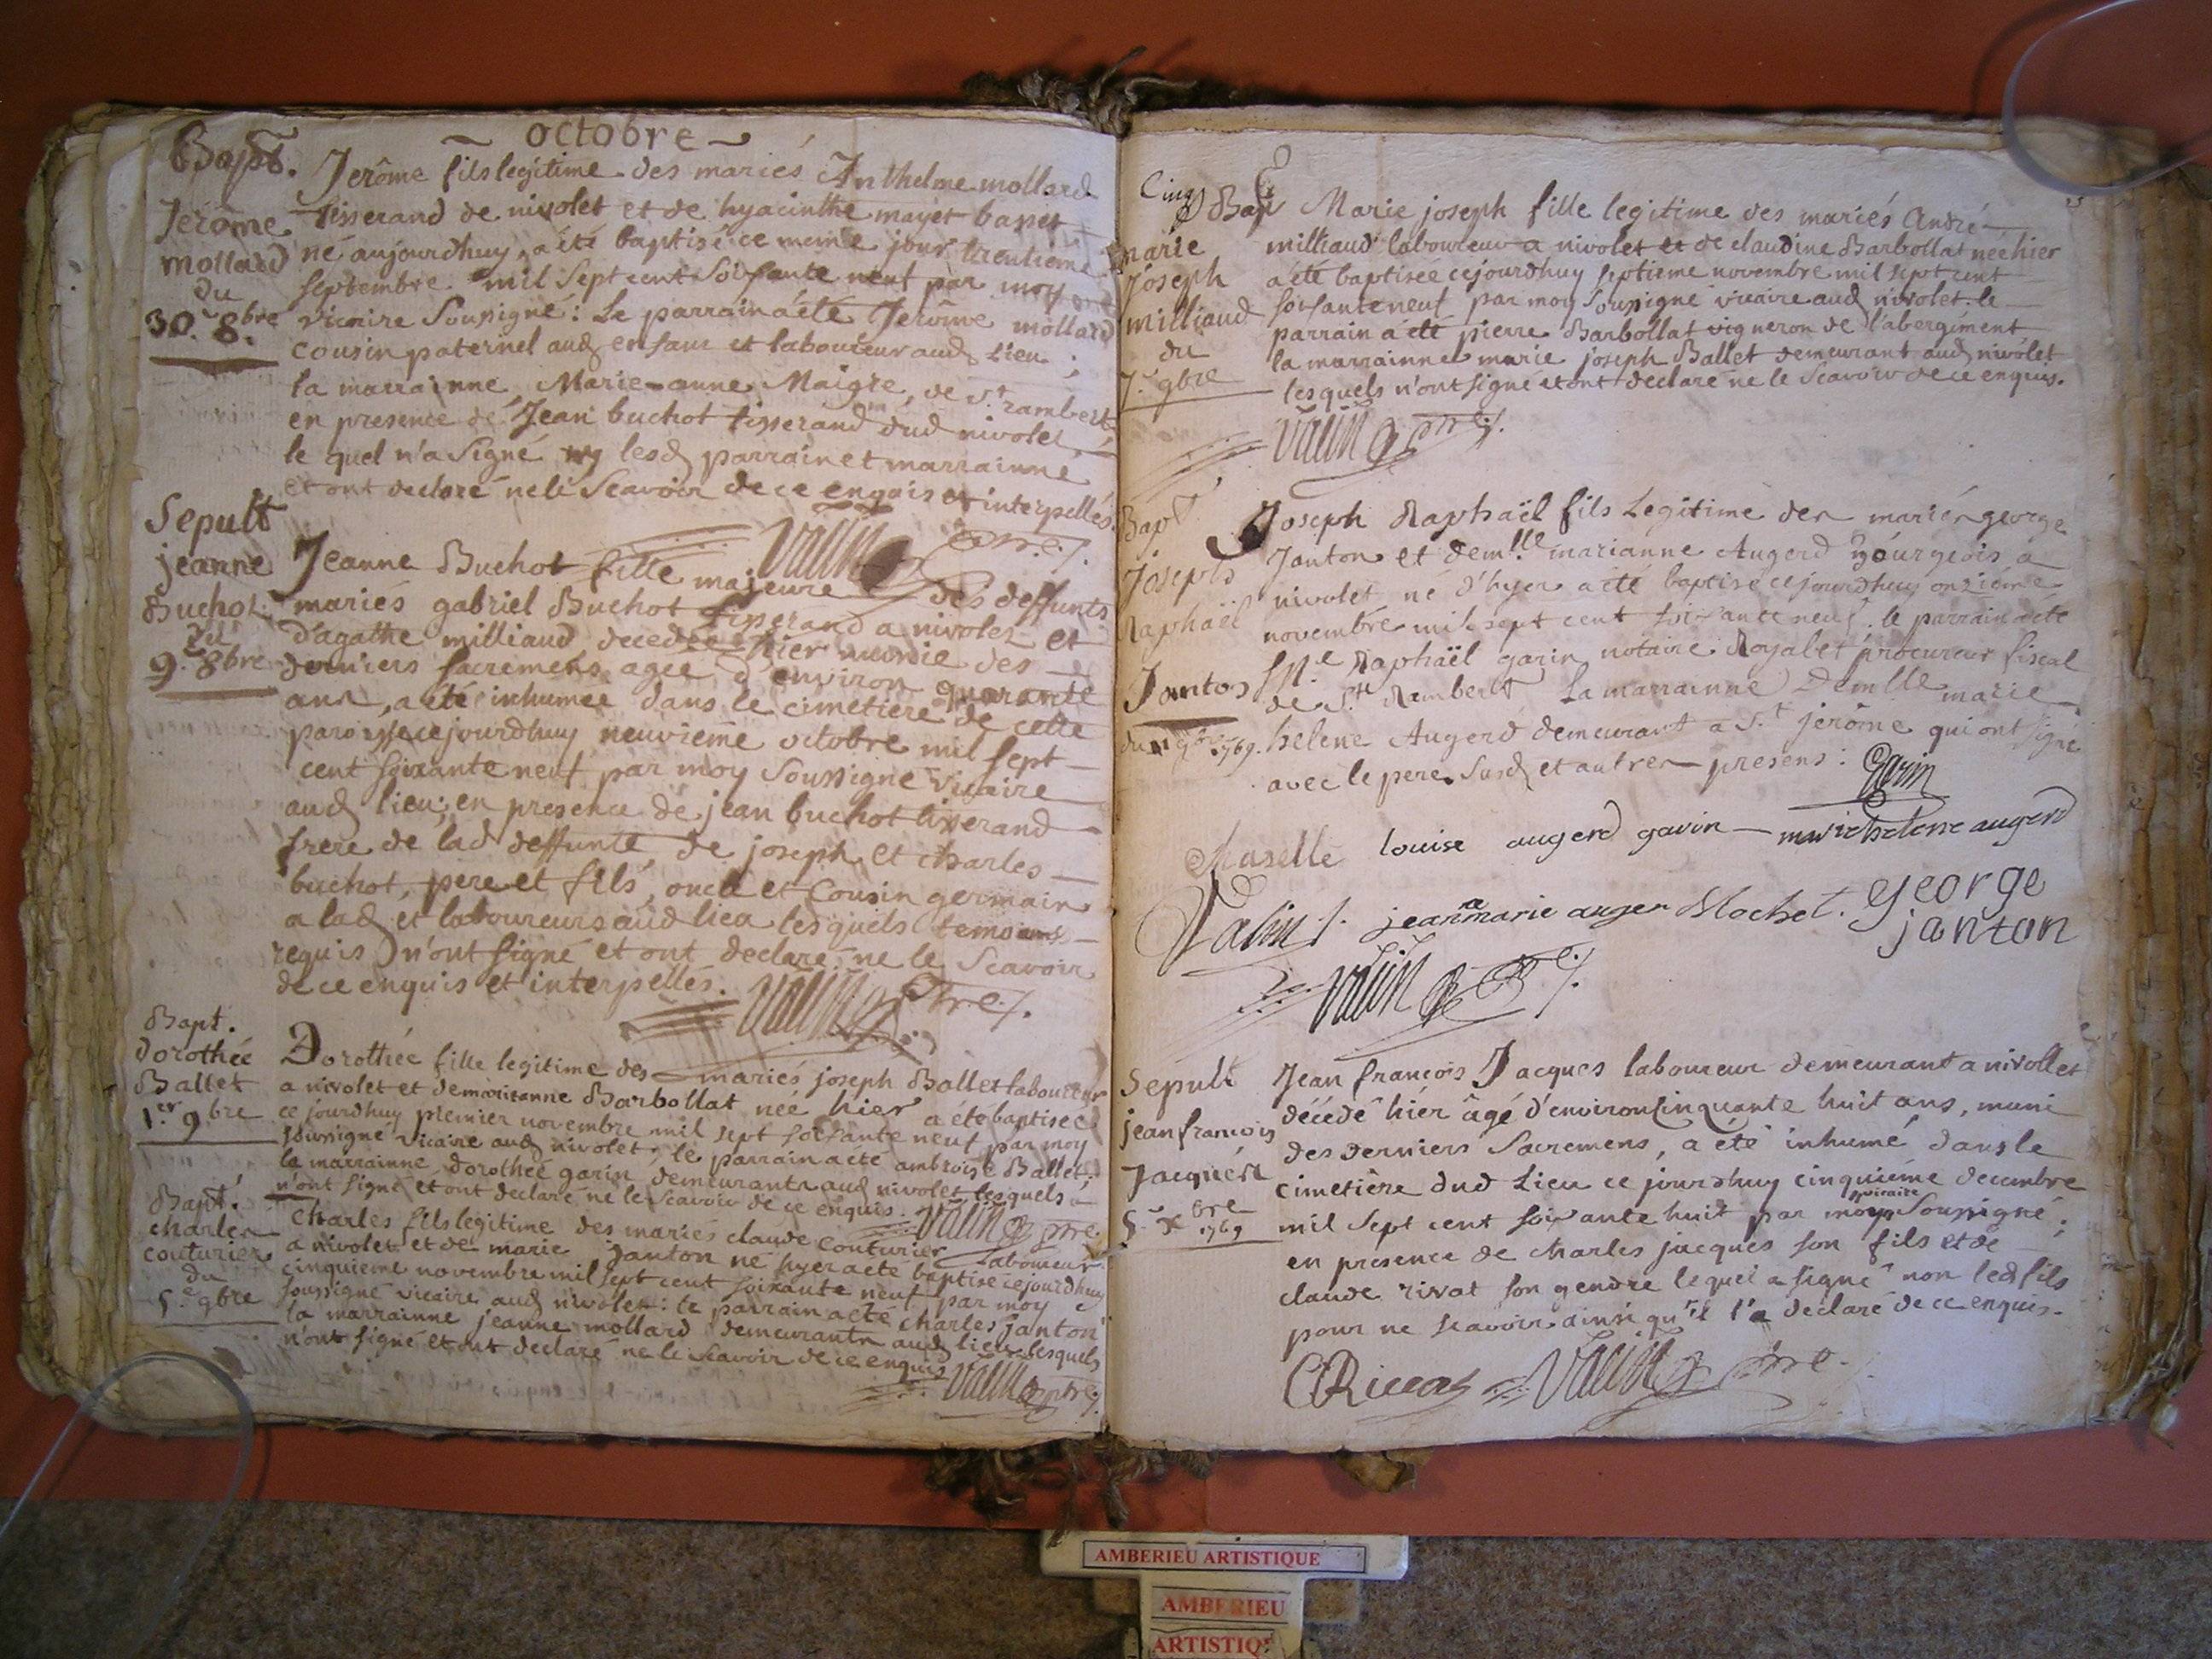 ~ octobre ~
Bapt.
Jerôme
mollard
du
30. 8.bre
Jerôme fils legitime des mariés Anthelme mollard
tisserand de nivolet et de hyacinthe mayet basset
né aujourdhuy, a été baptisé ce meme jour trentieme
septembre mil sept cent soixante neuf par moy
vicaire soussigné : Le parrain a été Jerôme mollard
cousin paternel aud enfant et laboureur aud Lieu ;
la marrainne Marie-anne Maigre, de s.t rambert
en presence de Jean buchot tisserand dud nivolet
le quel n'a signé ny lesd parrain et marrainne
et ont declaré ne le scavoir de ce enquis et interpellés.
Vallin ptre.
Sepult
jeanne
Buchot
du
9. 8bre
Jeanne Buchot fille majeure des deffunts
mariés gabriel Buchot tisserand a nivolet et
d'agathe milliaud decedée hier munie des
derniers sacremens agée d'environ quarante
ans, a été inhumée dans le cimetiere de cette
paroisse cejourdhuy neuvieme octobre mil sept
cent soixante neuf par moy soussigné vicaire
aud lieu; en presence de jean buchot tisserand
frere de lad deffunte de joseph et charles
buchot, pere et fils, oncle et Cousin germain
a lad et laboureurs aud lieu lesquels temoins
requis n'ont signé et ont declaré ne le scavoir
de ce enquis et interpellés.
Vallin ptre.
Bapt.
dorothée
Ballet
1.er 9.bre
Dorothée fille legitime des mariés joseph Ballet laboureur
a nivolet et de marianne Barbollat née hier a été baptisée
ce jourdhuy premier novembre mil sept soixante neuf par moy
soussigné vicaire aud nivolet; le parrain a été ambroise Ballet.
la marrainne dorothée garin demeurants aud nivolet lesquels
n'ont signé et ont declaré ne le scavoir de ce enquis.
Vallin ptre
Bapt.
charles
couturier
du
5.e 9bre
Charles fils legitime des mariés claude Couturier laboureur
a nivolet et de marie Janton né hyer a été baptisé cejourdhuy
cinquieme novembre mil sept cent soixante neuf par moy
soussigné vicaire aud nivolet : le parrain a été charles janton
la marrainne jeanne mollard demeurants aud lieu lesquels
n'ont signé et ont declaré ne le scavoir de ce enquis
Vallin ptre.
Cinq
Bap
marie
Joseph
milliaud
du
7. 9bre
Marie joseph fille legitime des mariés André
milliaud laboureur a nivolet et de claudine Barbollat née hier
a été baptisée cejourdhuy septieme novembre mil sept cent
soixante neuf par moy soussigné vicaire aud nivolet. le
parrain a été pierre Barbollat vigneron de l'abergement
la marrainne marie joseph Ballet demeurant aud nivolet
lesquels n'ont signé et ont declaré ne le scavoir de ce enquis.
Vallin ptre.
Bapt
Joseph
Raphaël
Janton
du 11 9bre 1769.
Joseph Raphaël fils Legitime des mariés george
Janton et dem.lle marianne Augerd Bourgeois a
nivolet né d'hyer a été baptisé cejourdhuy onzieme
novembre mil sept cent soixante neuf. le parrain a été
Raphaël garin notaire Royal et procureur fiscal
de S.t Rambert La marrainne Demlle marie
helene Augerd demeurant a S.t jerôme qui ont signé
avec le pere susd et autres presens :
Garin
Maselle louise augerd gavin — marie helene augerd
Valin jeanna marie auger Mochet. george
janton
Vallin ptre
Sepult
jean francois
Jacques
5. xbre
1769
Jean francois Jacques laboureur demeurant a nivollet
décédé hier âgé d'environ cinquante huit ans, muni
des derniers Sacremens, a été inhumé dans le
cimetière dud Lieu ce jourdhuy cinquième decembre
mil sept cent soixante huit par moy vicaire soussigné ;
en presence de charles jacques son fils et de
claude rivat son gendre lequel a signé non led fils
pour ne scavoir ainsi qu'il l'a declaré de ce enquis.
Vallin ptre.
AMBERIEU ARTISTIQUE
AMBERIEU
ARTISTIQ